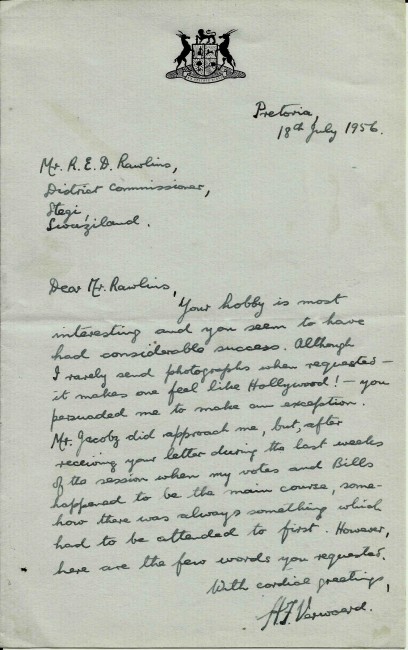 Pretoria,
18th July 1956.
Mr. R. E. D. Rawlins,
District Commissioner,
Stegi
Swaziland.
Dear Mr. Rawlins,
Your hobby is most
interesting and you seem to have
had considerable success. Although
I rarely send photographs when requested –
it makes one feel like Hollywood! – you
persuaded me to make an exception.
Mr. Jacoby did approach me, but, after
receiving your letter during the last weeks
of the session when my votes and Bills
happened to be the main course, some-
how there was always something which
had to be attended to first. However,
here are the few words you requested.
With cordial greetings,
HF Verwoerd.